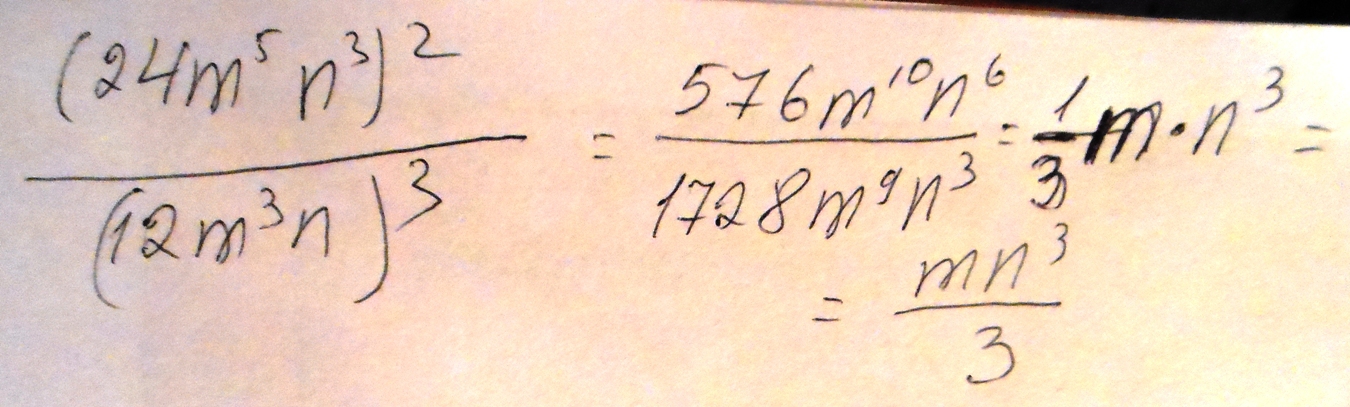 (24m⁵n³)² / (12m³n)³ = 576m¹⁰n⁶ / 1728m⁹n³ = 1/3 m·n³ =
= mn³ / 3